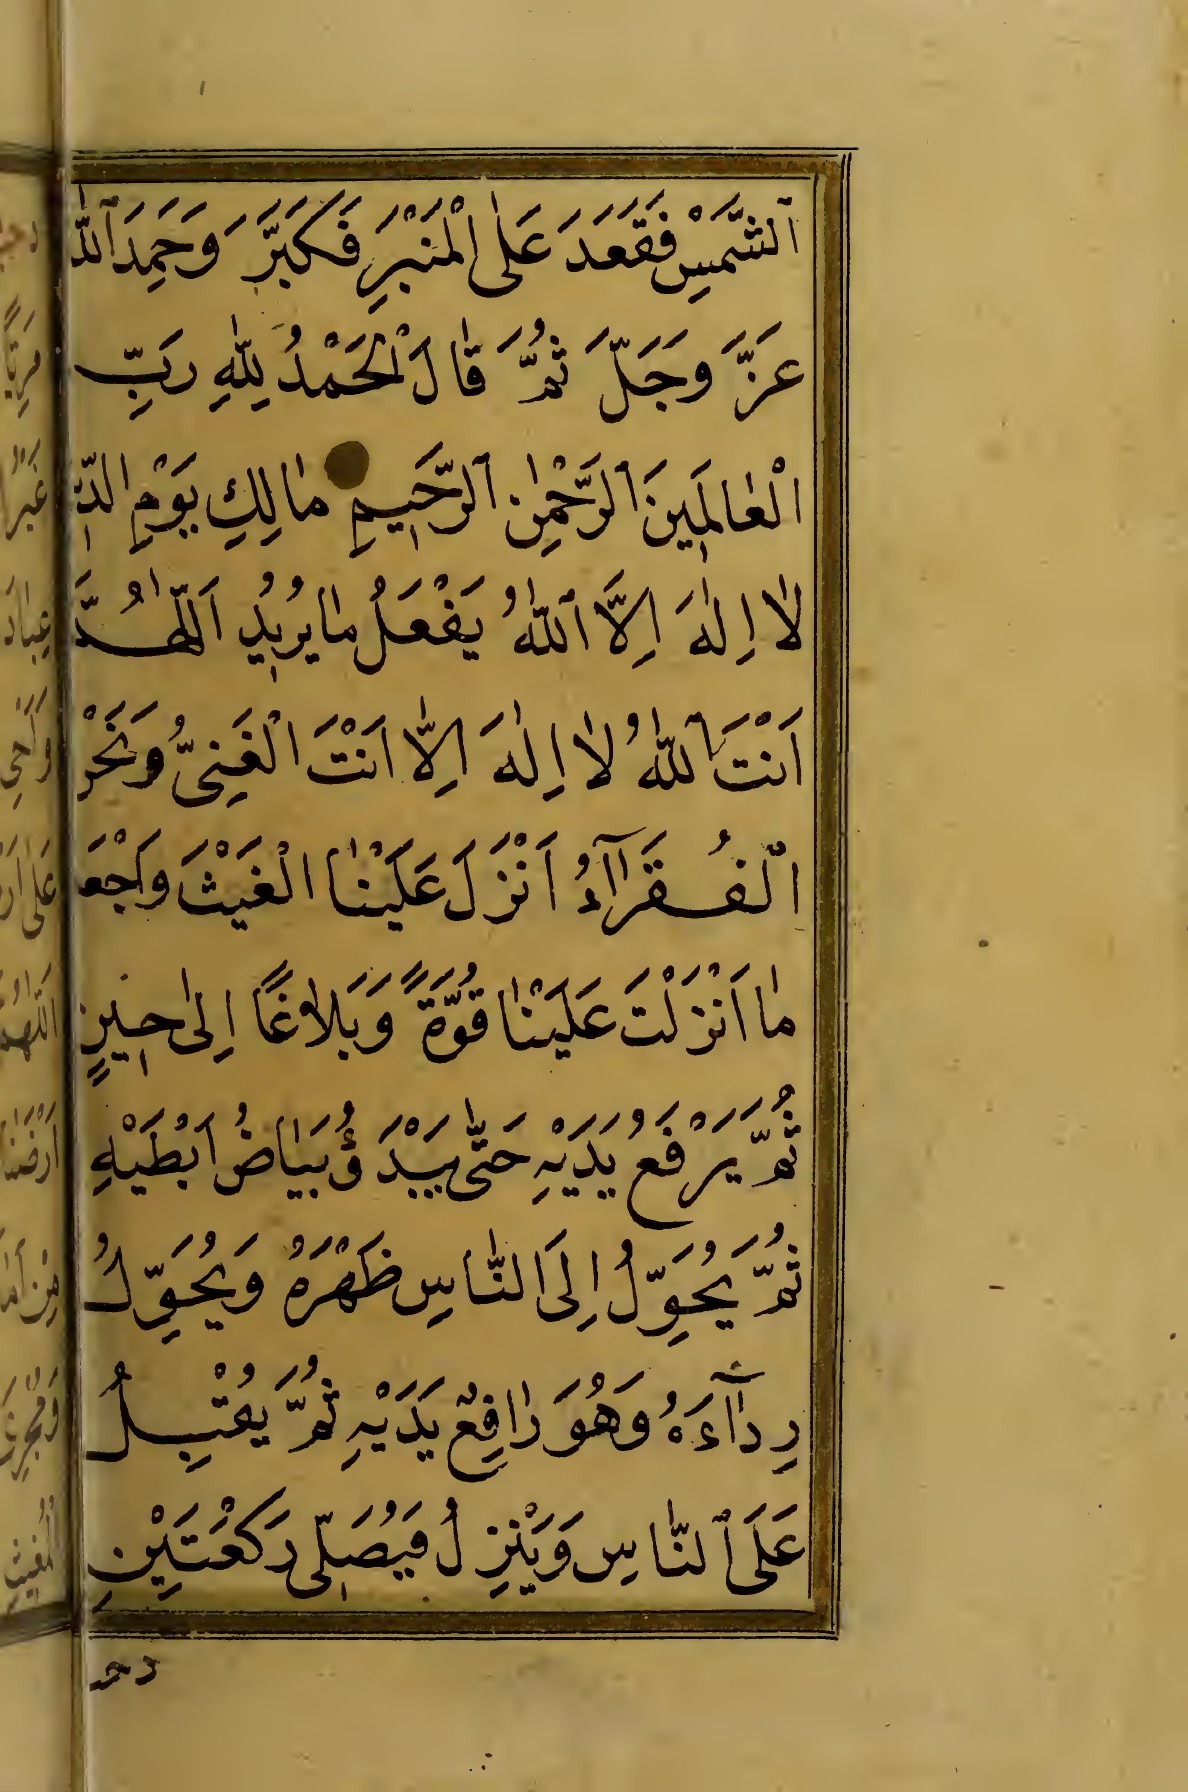 اَلشَّمْسِ فَقَعَدَ عَلَى الْمَنْبَرِ فَكَبَّرَ وَحَمِدَ اللّٰهَ
عَزَّ وَجَلَّ ثُمَّ قَالَ الْحَمْدُ لِلّٰهِ رَبِّ
الْعَالَمِينَ الرَّحْمٰنِ الرَّحِيمِ مَالِكِ يَوْمِ الدِّ
لَا اِلٰهَ اِلَّا اللّٰهُ يَفْعَلُ مَا يُرِيدُ اَللّٰهُمَّ
اَنْتَ اللّٰهُ لَا اِلٰهَ اِلَّا اَنْتَ الْغَنِيُّ وَنَحْنُ
الْفُقَرَآءُ اَنْزَلَ عَلَيْنَا الْغَيْثَ وَاجْعَ
مَا اَنْزَلْتَ عَلَيْنَا قُوَّةً وَبَلَاغًا اِلَى حِينٍ
ثُمَّ يَرْفَعُ يَدَيْهِ حَتَّى يَبْدَ ؤُبَيَاضُ اَبْطَيْهِ
ثُمَّ يُحَوِّلُ اِلَى النَّاسِ ظَهْرَهُ وَيُحَوِّلُ
رِدَآءَهُ وَهُوَ رَافِعٌ يَدَيْهِ ثُمَّ يُقْبِلُ
عَلَى النَّاسِ وَيَنْزِلُ فَيُصَلِّى رَكْعَتَيْنِ